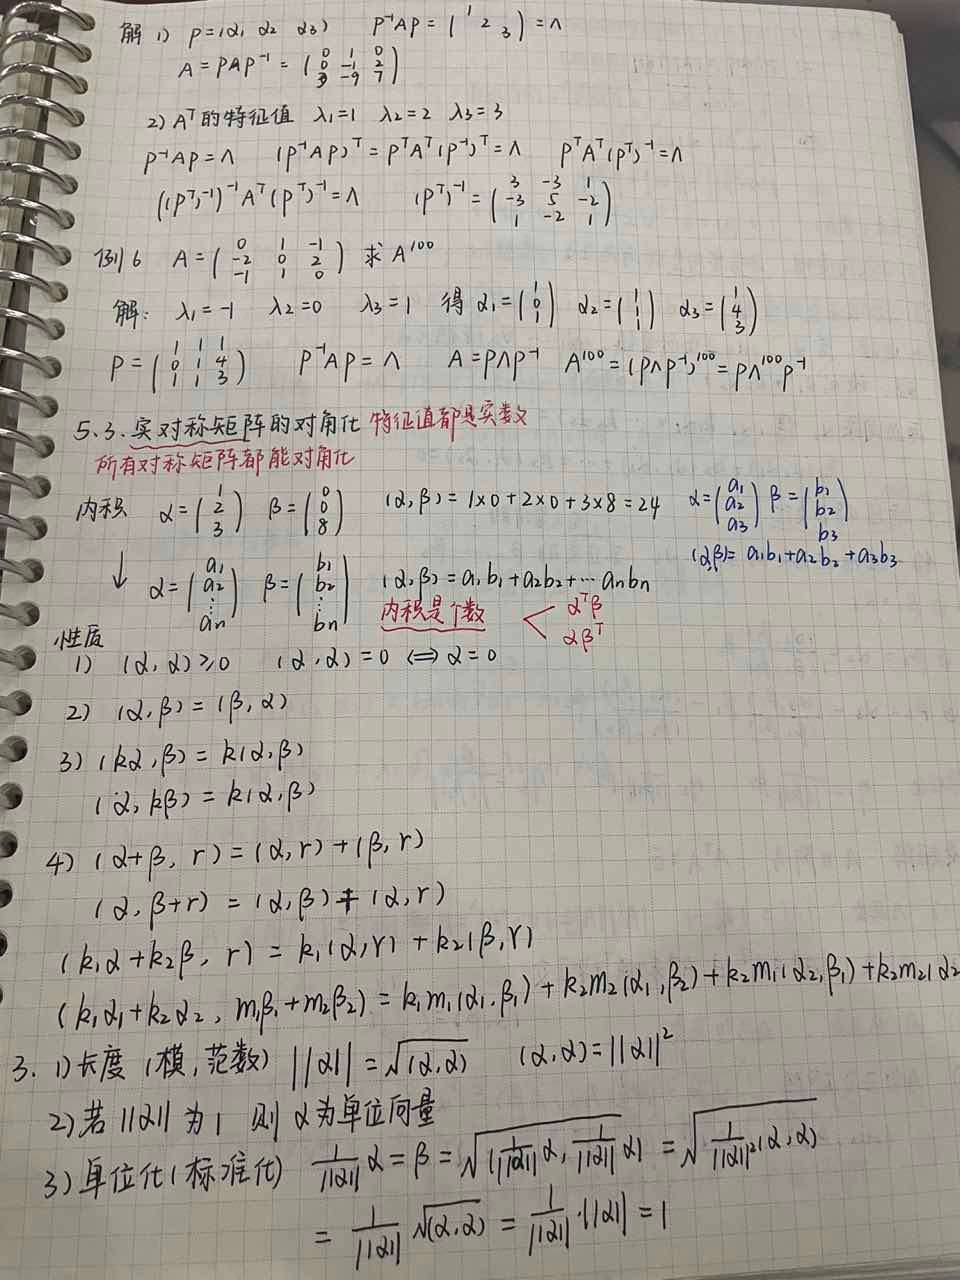 解 1) P=(α₁ α₂ α₃) P⁻¹AP = (1 2 3) = Λ
A = PΛP⁻¹ = (0 1 0; 0 -1 2; 3 -9 7)
2) Aᵀ的特征值 λ₁=1 λ₂=2 λ₃=3
P⁻¹AP = Λ (P⁻¹AP)ᵀ = PᵀAᵀ(P⁻¹)ᵀ = Λ PᵀAᵀ(Pᵀ)⁻¹ = Λ
((Pᵀ)⁻¹)⁻¹Aᵀ(Pᵀ)⁻¹ = Λ (Pᵀ)⁻¹ = (3 -3 1; -3 5 -2; 1 -2 1)
例6 A = (0 1 -1; -2 0 2; -1 1 0) 求 A¹⁰⁰
解: λ₁ = -1 λ₂ = 0 λ₃ = 1 得 α₁ = (1; 0; 1) α₂ = (1; 1; 1) α₃ = (1; 4; 3)
P = (1 1 1; 0 1 4; 1 1 3) P⁻¹AP = Λ A = PΛP⁻¹ A¹⁰⁰ = (PΛP⁻¹)¹⁰⁰ = PΛ¹⁰⁰P⁻¹
5.3. 实对称矩阵的对角化 特征值都是实数
所有对称矩阵都能对角化
内积 α = (1; 2; 3) β = (0; 0; 8) (α,β) = 1×0+2×0+3×8 = 24 α = (a₁; a₂; a₃) β = (b₁; b₂; b₃)
(α,β) = a₁b₁+a₂b₂+a₃b₃
↓ α = (a₁; a₂; ⋮; aₙ) β = (b₁; b₂; ⋮; bₙ) (α,β) = a₁b₁+a₂b₂+⋯aₙbₙ
内积是个数 < αᵀβ αβᵀ
性质
1) (α,α) ≥ 0 (α,α) = 0 ⟺ α = 0
2) (α,β) = (β,α)
3) (kα,β) = k(α,β)
(α,kβ) = k(α,β)
4) (α+β, r) = (α,r)+(β,r)
(α,β+r) = (α,β)+(α,r)
(k₁α+k₂β, r) = k₁(α,r) + k₂(β,r)
(k₁α₁+k₂α₂, m₁β₁+m₂β₂) = k₁m₁(α₁,β₁) + k₂m₂(α₁,β₂) + k₂m₁(α₂,β₁) + k₂m₂(α₂
3. 1) 长度 (模,范数) ||α|| = √(α,α) (α,α) = ||α||²
2) 若 ||α|| 为 1 则 α 为单位向量
3) 单位化(标准化) 1/||α|| α = β = √(1/||α|| α, 1/||α|| α) = √1/||α||² (α,α)
= 1/||α|| √(α,α) = 1/||α|| ·||α|| = 1